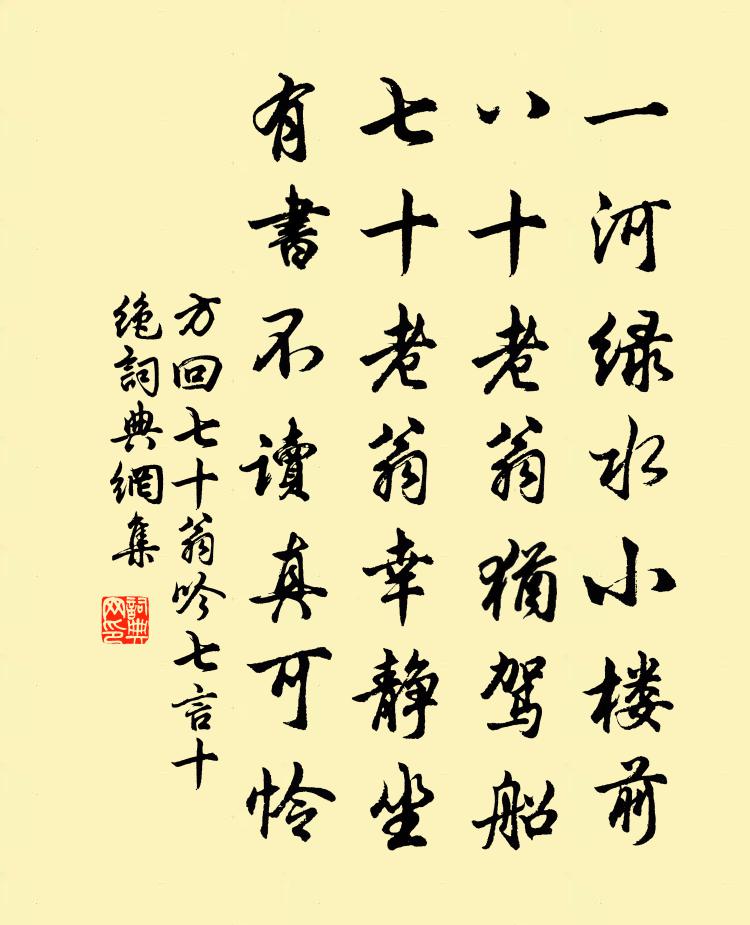 一河绿水小楼前
八十老翁犹驾船
七十老翁幸静坐
有書不讀真可怜
方回七十翁吟七言十
绝詞典網集
詞典
网印